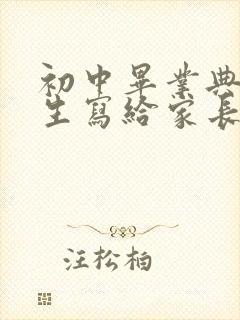 初中畢業典
生寫給家長
汪松柏